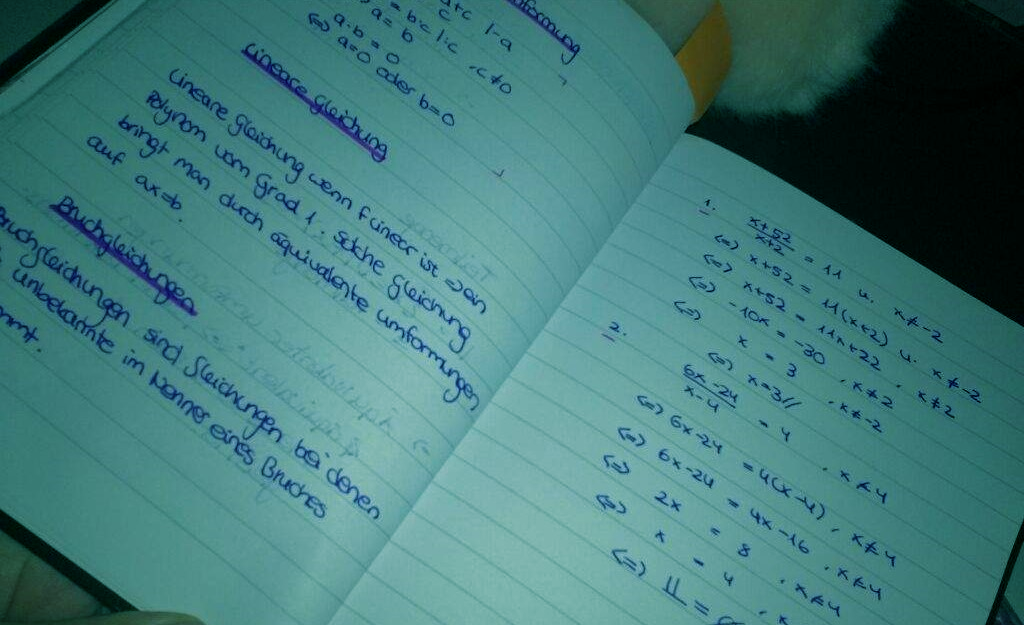 umformung
a+c |-a
= b·c |:c , c≠0
a = b
a·b = 0
(=) a=0 oder b=0
Lineare gleichung
Lineare gleichung wenn f linear ist => ein
Polynom vom Grad 1. Solche gleichung
bringt man durch äquivalente umformungen
auf ax=b.
Bruchgleichungen
Bruchgleichungen sind gleichungen bei denen
unbekannte im Nenner eines Bruches
1. x+52/x+2 = 11 u. x≠-2
(=) x+52 = 11(x+2) u. x≠-2
(=) x+52 = 11x+22 , x≠2
(=) -10x = -30 , x≠2
(=) x = 3 , x≠-2
(=) x=3//
2. 6x-24/x-4 = 4 , x≠4
(=) 6x-24 = 4(x-4) , x≠4
(=) 6x-24 = 4x-16 , x≠4
(=) 2x = 8 , x≠4
(=) x = 4 , x
(=) 𝕃 =